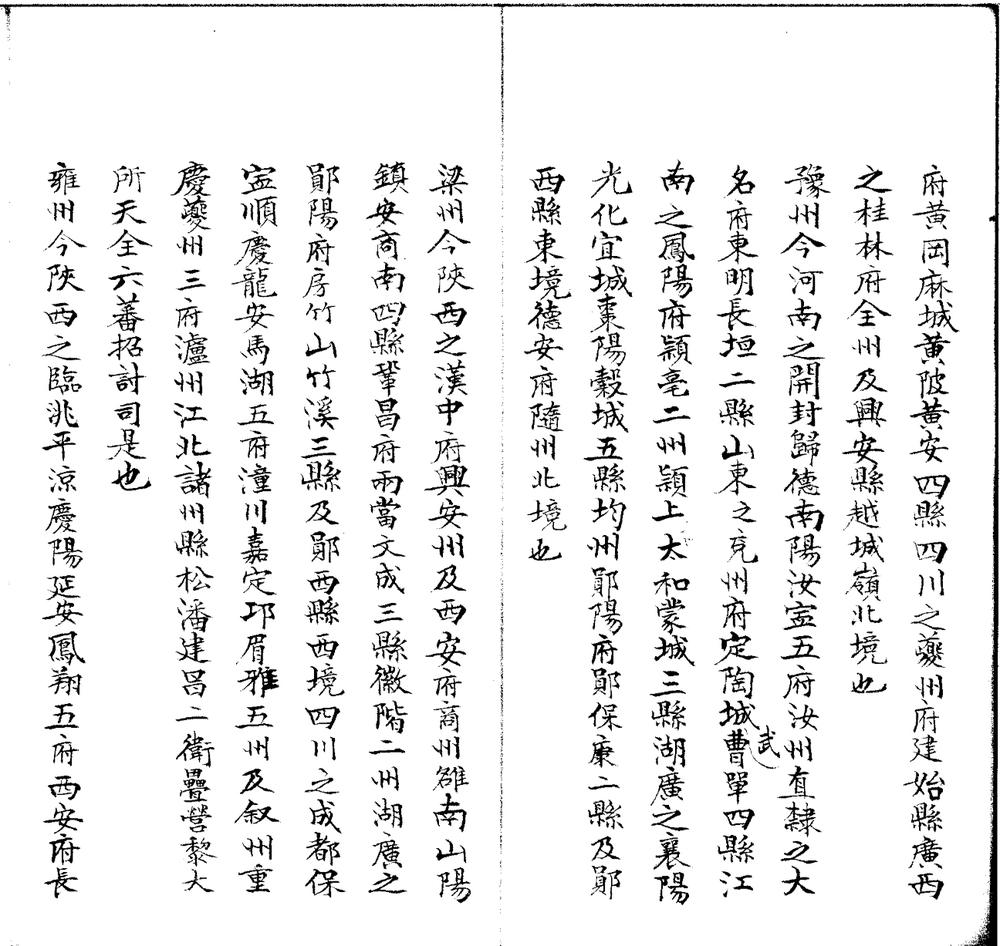 府黃岡麻城黃陂黃安四縣四川之夔州府建始縣廣西
之桂林府全州及興安縣越城嶺北境也
豫州今河南之開封歸德南陽汝寍五府汝州直隸之大
名府東明長垣二縣山東之兗州府定陶城武曹單四縣江
南之鳳陽府潁亳二州潁上太和蒙城三縣湖廣之襄陽
光化宜城棗陽穀城五縣均州鄖陽府鄖保康二縣及鄖
西縣東境德安府隨州北境也
梁州今陝西之漢中府興安州及西安府商州雒南山陽
鎮安商南四縣鞏昌府兩當文成三縣徽階二州湖廣之
鄖陽府房竹山竹溪三縣及鄖西縣西境四川之成都保
寍順慶龍安馬湖五府潼川嘉定邛眉雅五州及叙州重
慶夔州三府瀘州江北諸州縣松潘建昌二衛疊營黎大
所天全六蕃招討司是也
雍州今陝西之臨洮平涼慶陽延安鳳翔五府西安府長